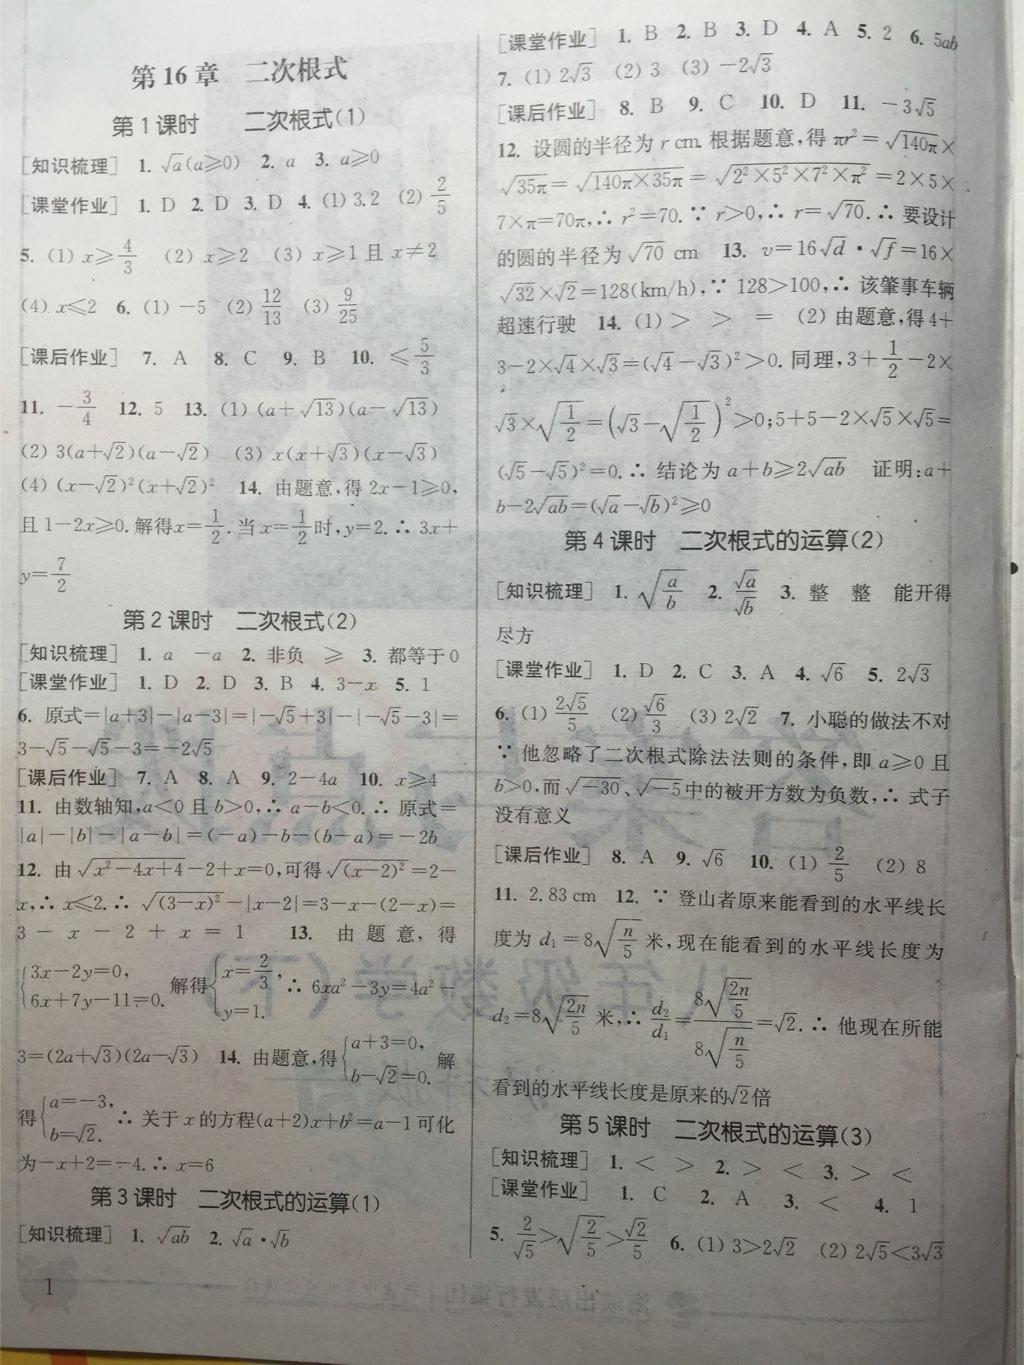 第16章 二次根式
第1课时 二次根式(1)
[知识梳理] 1. √a(a≥0) 2. a 3. a≥0
[课堂作业] 1. D 2. D 3. D 4. (1) 3.2 (2) 2/5
5. (1) x≥4/3 (2) x≥2 (3) x≥1且x≠2
(4) x≤2 6. (1) －5 (2) 12/13 (3) 9/25
[课后作业] 7. A 8. C 9. B 10. ≤5/3
11. －3/4 12. 5 13. (1) (a＋√13)(a－√13)
(2) 3(a＋√2)(a－√2) (3) x(x＋√3)(x－√3)
(4) (x－√2)²(x＋√2)² 14. 由题意,得2x－1≥0,
且1－2x≥0.解得x＝1/2.当x＝1/2时,y＝2.∴ 3x＋
y＝7/2
第2课时 二次根式(2)
[知识梳理] 1. a －a 2. 非负 ≥ 3. 都等于0
[课堂作业] 1. D 2. D 3. B 4. 3－x 5. 1
6. 原式＝|a＋3|－|a－3|＝|－√5＋3|－|－√5－3|＝
3－√5－√5－3＝－2√5
[课后作业] 7. A 8. A 9. 2－4a 10. x≥4
11. 由数轴知,a＜0且b＞0,∴ a－b＜0.∴ 原式＝
|a|－|b|－|a－b|＝(－a)－b－(b－a)＝－2b
12. 由√(x²－4x＋4)－2＋x＝0,可得√((x－2)²)＝2－
x,∴ x≤2.∴ √((3－x)²)－|x－2|＝3－x－(2－x)＝
3－x－2＋x＝1 13. 由题意,得
{3x－2y＝0, 6x＋7y－11＝0. 解得{x＝2/3, y＝1. ∴ 6xa²－3y＝4a²－
3＝(2a＋√3)(2a－√3) 14. 由题意,得{a＋3＝0, b－√2＝0. 解
得{a＝－3, b＝√2. ∴ 关于x的方程(a＋2)x＋b²＝a－1可化
为－x＋2＝－4.∴ x＝6
第3课时 二次根式的运算(1)
[知识梳理] 1. √ab 2. √a·√b
1
[课堂作业] 1. B 2. B 3. D 4. A 5. 2 6. 5ab
7. (1) 2√3 (2) 3 (3) －2√3
[课后作业] 8. B 9. C 10. D 11. －3√5
12. 设圆的半径为r cm.根据题意,得πr²＝√140π×
√35π＝√(140π×35π)＝√(2²×5²×7²×π²)＝2×5×
7×π＝70π,∴ r²＝70.∵ r＞0,∴ r＝√70.∴ 要设计
的圆的半径为√70 cm 13. v＝16√d·√f＝16×
√32×√2＝128(km/h),∵ 128＞100,∴ 该肇事车辆
超速行驶 14. (1) ＞ ＞ ＝ (2) 由题意,得4＋
3－2×√4×√3＝(√4－√3)²＞0.同理,3＋1/2－2×
√3×√(1/2)＝(√3－√(1/2))²＞0;5＋5－2×√5×√5＝
(√5－√5)²＝0.∴ 结论为a＋b≥2√ab 证明:a＋
b－2√ab＝(√a－√b)²≥0
第4课时 二次根式的运算(2)
[知识梳理] 1. √(a/b) 2. √a/√b 3. 整 整 能开得
尽方
[课堂作业] 1. D 2. C 3. A 4. √6 5. 2√3
6. (1) 2√5/5 (2) √6/3 (3) 2√2 7. 小聪的做法不对
∵ 他忽略了二次根式除法法则的条件,即a≥0且
b＞0,而√－30、√－5中的被开方数为负数,∴ 式子
没有意义
[课后作业] 8. A 9. √6 10. (1) 2/5 (2) 8
11. 2.83 cm 12. ∵ 登山者原来能看到的水平线长
度为d₁＝8√(n/5)米,现在能看到的水平线长度为
d₂＝8√(2n/5)米,∴ d₂/d₁＝8√(2n/5)/8√(n/5)＝√2.∴ 他现在所能
看到的水平线长度是原来的√2倍
第5课时 二次根式的运算(3)
[知识梳理] 1. ＜ ＞ 2. ＞ ＜ 3. ＞ ＜
[课堂作业] 1. C 2. A 3. ＜ 4. 1
5. 2/√5＞√(2/5)＞√2/5 6. (1) 3＞2√2 (2) 2√5＜3√3